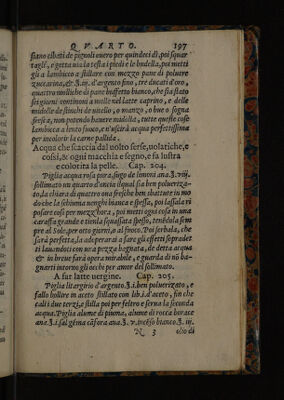 QVARTO. 197
siano cibati de pignoli ouero per quindeci dì, poi squar
tagli, e getta uia la testa i piedi e le budella, poi metti
gli a lambicco a stillare con mezzo pane di poluere
zuccarina, & ℥.iij. d'argento fino, tre ducati d'oro,
quattro molliche di pane buffetto bianco, che sia stato
sei giorni continoui a molle nel latte caprino, e delle
midolle de stinchi de uitello, o manzo, o bue o sogna
fresca, non potendo hauere midolla, tutte queste cose
lambicca a lento fuoco, e n'uscirà acqua perfettissima
per incolorir la carne pallida.
Acqua che scaccia dal uolto serse, uolatiche, e
cossi, & ogni macchia e segno, e fa lustra
e colorita la pelle. Cap. 204.
Piglia acqua rosa pura, sugo de limoni ana.℥.viij.
solimato un quarto d'oncia il qual sia ben puluerizza
to, la chiara di quattro oua fresche ben sbattute in mo
do che la schiuma uenghi bianca e spessa, poi lassala ri
posare ogni per mezz'hora, poi metti ogni cosa in una
caraffa grande e tienla squassata spesso, tenẽdola sem
pre al Sole per otto giorni, o al fuoco. Poi serbala, che
sarà perfetta, la adoperarai a sare gli effetti sopradet
ti lauandoti con una pezza bagnata, de detta acqua
& in breue farà opera mirabile, e guarda di nõ ba-
gnarti intorno gli occhi per amor del solimato.
A far latte uergine. Cap. 205.
Piglia litargirio d'argento ℥.i. ben puluerizato, e
fallo bollire in aceto stillato con lib.i. d'aceto, fin che
cali i due terzi, e stilla poi per feltro e serua la seconda
acqua. Piglia alume di piuma, alume di rocca borace
ana.℥.i. sal gẽma cãfora ana.℥.v. incẽso bianco.℥.iij.
N 3 olio di